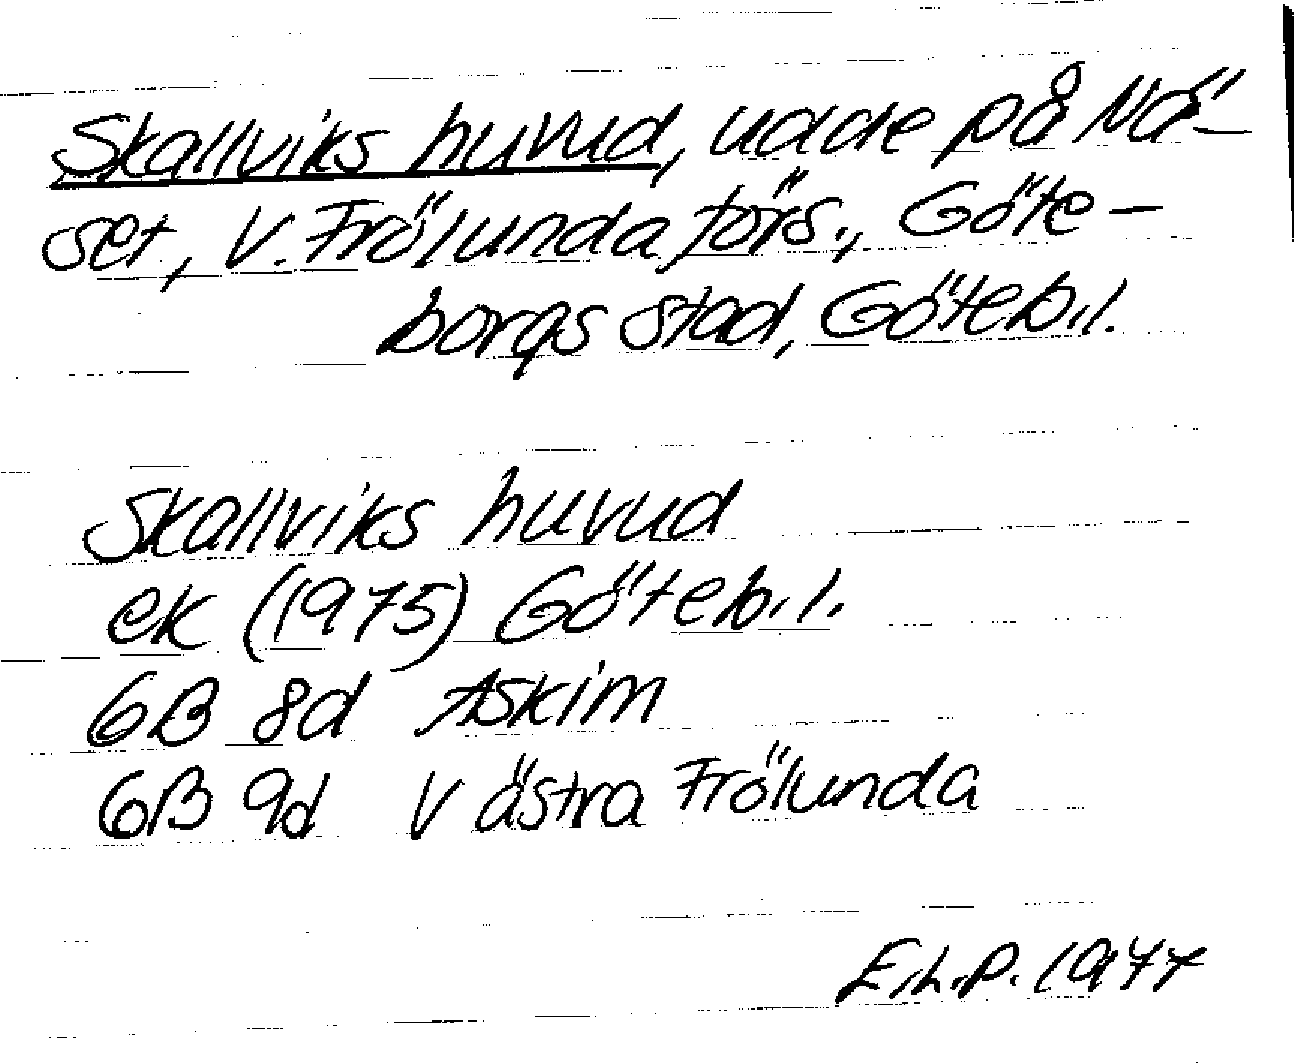 Skallviks huvud, udde på Nä-
set, V. Frölunda förs., Göte-
borgs stad, Göteb.l.
Skallviks huvud
ek (1975) Göteb.l.
6B 8d Askim
6B 9d Västra Frölunda
E.L.P. 1977